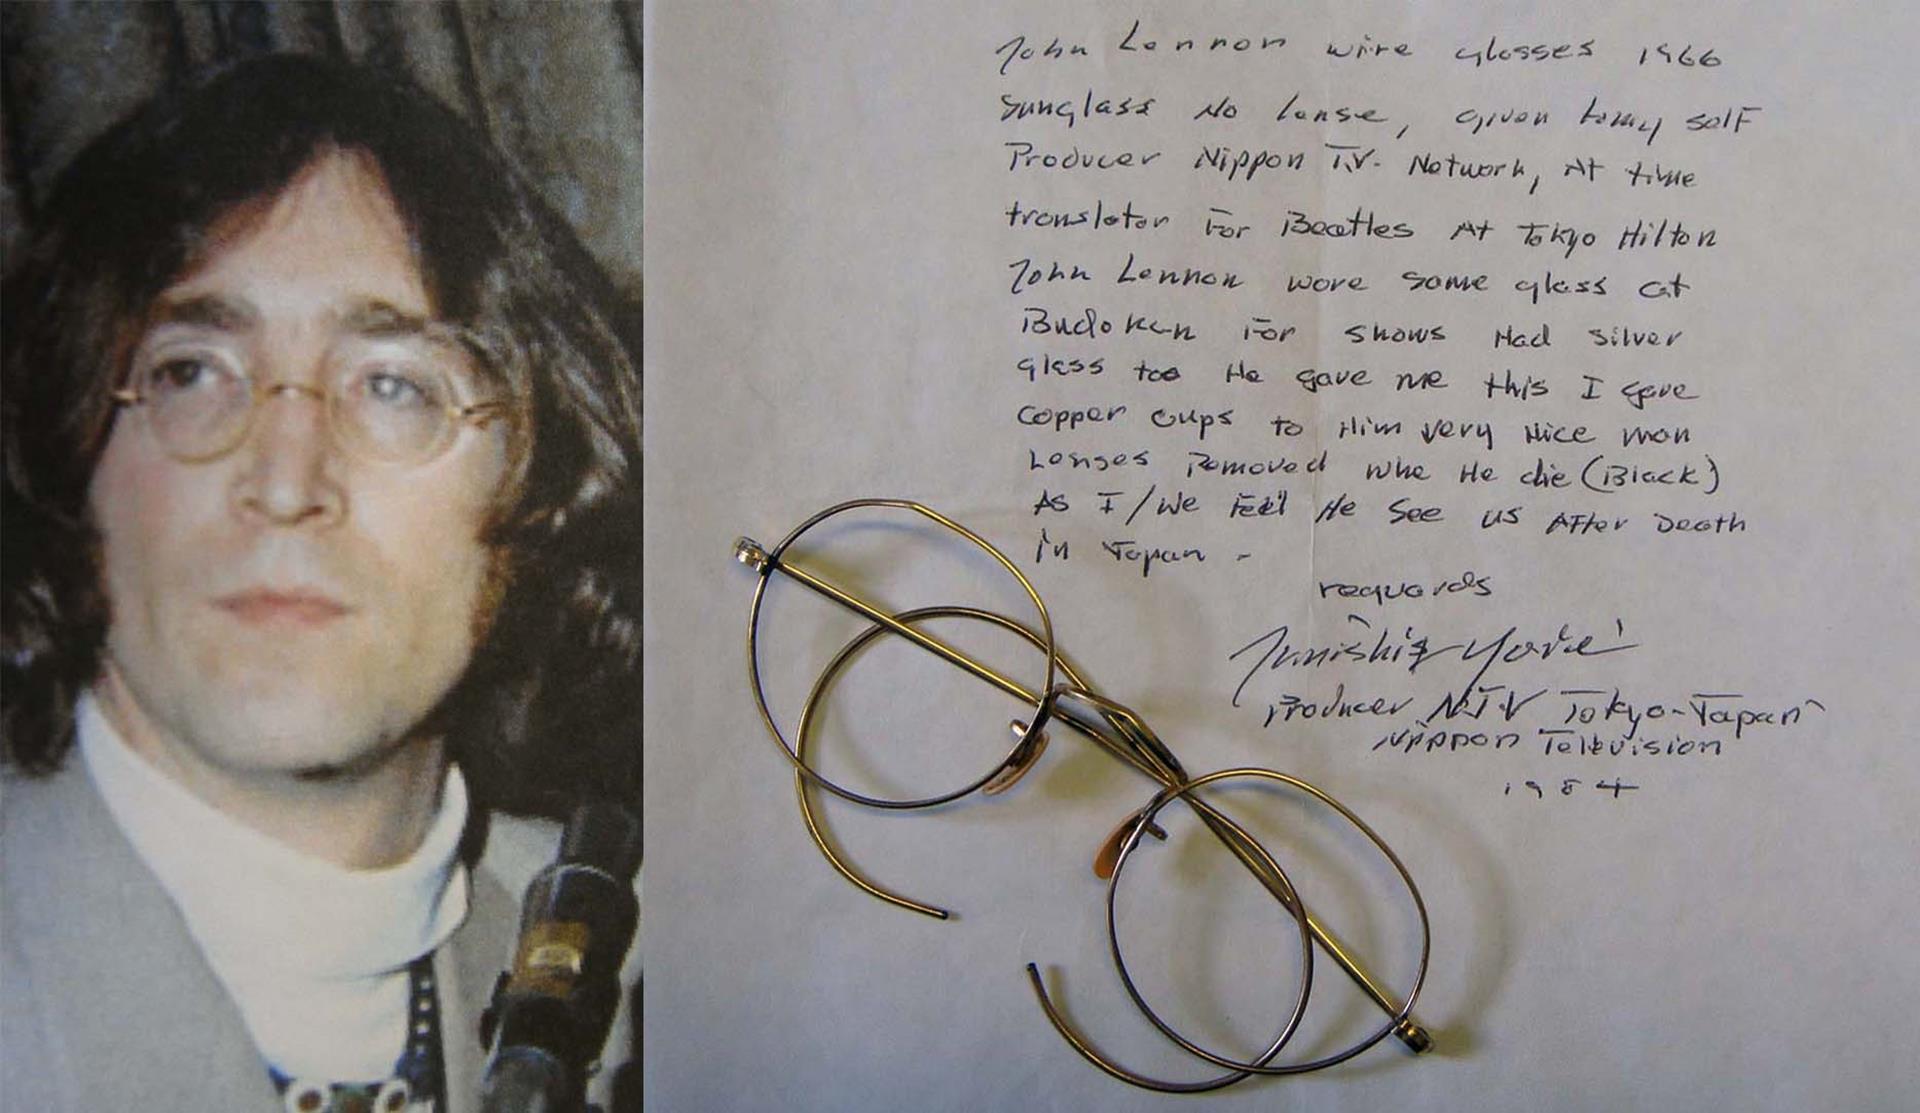 John Lennon wire glasses 1966
Sunglass No lense, given to my self
Producer Nippon T.V. Network, At time
translator For Beatles At Tokyo Hilton
John Lennon wore same glass at
Budokan For shows Had silver
glass too He gave me this I gave
copper cups to Him very Nice man
Lenses Removed whe He die (Black)
As I/We Feel He See us After Death
in Japan -
reguards
Producer N.T.V Tokyo-Japan
Nippon Television
1984